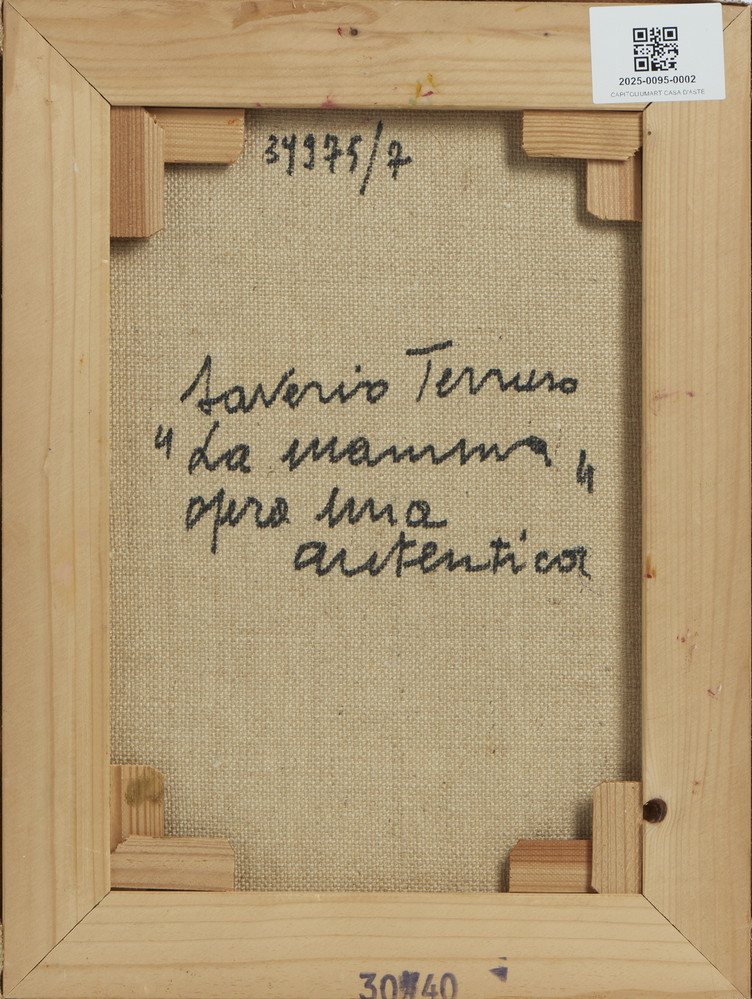 2025-0095-0002
CAPITOLIUMART CASA D'ASTE
34975/7
Saverio Terruso
"La mamma"
opera mia
autentica
30 40